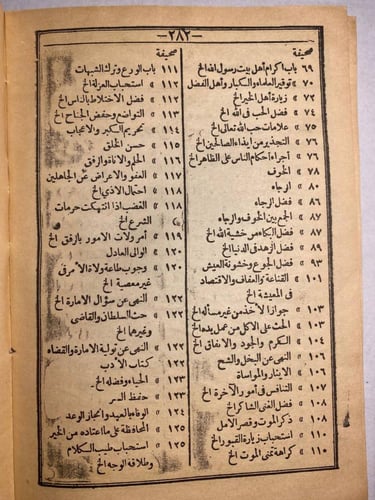 ـ٢٨٢ـ
صحيفة
٦٩ باب اكرام أهل بيت رسول الله الخ
٧٠ توقير العلماء والكبار وأهل الفضل
٧٢ زيارة أهل الخير الخ
٧٤ فضل الحب فى الله الخ
٧٥ علامات حب الله تعالى الخ
٧٦ التحذير من ايذاء الصالحين الخ
٧٦ اجراء احكام الناس على الظاهر الخ
٧٨ الخوف
٨٠ الرجاء
٨٦ فضل الرجاء
٨٧ الجمع بين الخوف والرجاء
٨٧ فضل البكاء من خشية الله الخ
٨٩ فضل الزهد فى الدنيا الخ
٩٣ فضل الجوع وخشونة العيش
١٠١ القناعة والعفاف والاقتصاد
فى المعيشة الخ
١٠٣ جواز الأخذ من غير مسألة الخ
١٠٣ الحث على الاكل من عمل يده الخ
١٠٤ الكرم والجود والانفاق الخ
١٠٦ النهى عن البخل والشح
١٠٦ الايثار والمواساة
١٠٧ التنافس فى أمور الآخرة الخ
١٠٨ فضل الغنى الشاكر الخ
١٠٨ ذكر الموت وقصر الأمل
١١٠ استحباب زيارة القبور الخ
١١٠ كراهة تمنى الموت الخ
صحيفة
١١١ باب الورع وترك الشبهات
١١٢ » استحباب العزلة الخ
١١٢ » فضل الاختلاط بالناس الخ
١١٣ » التواضع وخفض الجناح الخ
١١٤ » تحريم الكبر والاعجاب
١١٥ » حسن الخلق
١١٦ » الحلم والاناة والرفق
١١٧ » العفو والاعراض عن الجاهلين
١١٨ » احتمال الاذى الخ
١١٨ » الغضب اذا انتهكت حرمات
الشرع الخ
١١٩ » أمر ولات الامور بالرفق الخ
١٢٠ » الوالى العادل
١٢٠ » وجوب طاعة ولاة الأمر فى
غير معصية الخ
١٢١ » النهى عن سؤال الامارة الخ
١٢٢ » حث السلطان والقاضى
وغيرهما الخ
١٢٢ » النهى عن تولية الامارة والقضاء
١٢٢ » كتاب الأدب
١٢٣ » الحياء وفضله الخ
١٢٣ » حفظ السر
١٢٤ » الوفاء بالعهد وانجاز الوعد
١٢٥ » المحافظة على ما اعتاده من الخير
١٢٥ » استحباب طيب الكلام
وطلاقة الوجه الخ